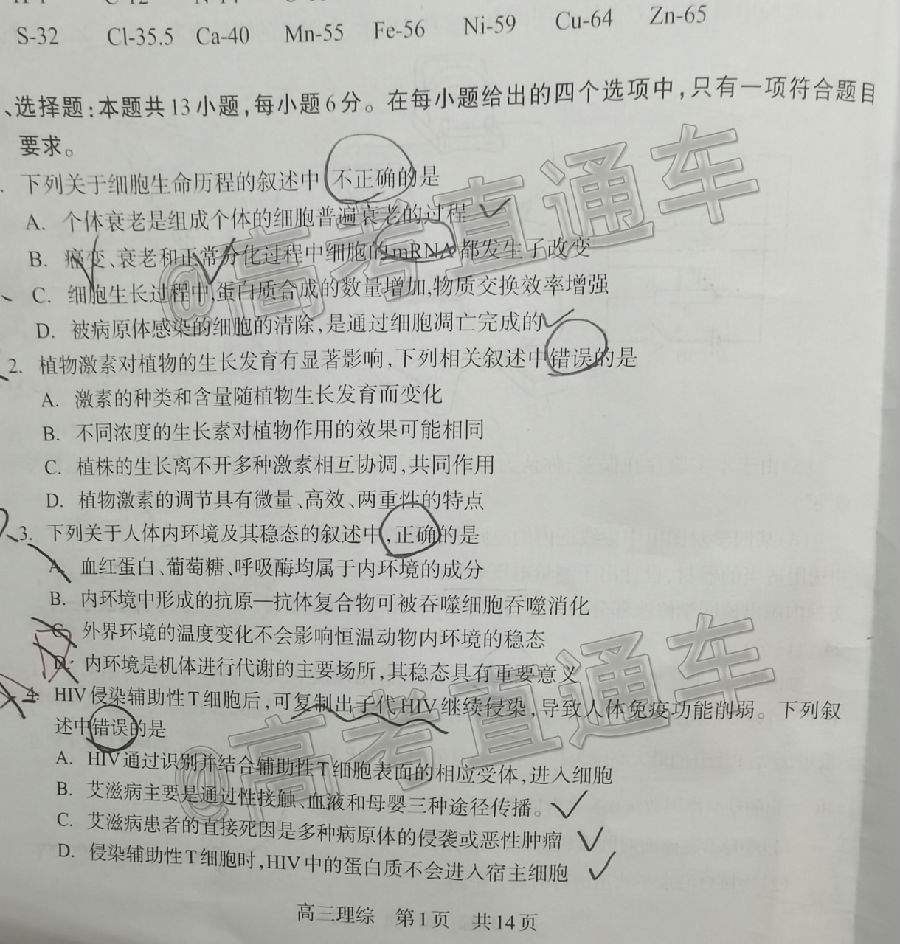 S-32 Cl-35.5 Ca-40 Mn-55 Fe-56 Ni-59 Cu-64 Zn-65
、选择题:本题共13小题,每小题6分。在每小题给出的四个选项中,只有一项符合题目
要求。
. 下列关于细胞生命历程的叙述中,不正确的是
A. 个体衰老是组成个体的细胞普遍衰老的过程
B. 癌变、衰老和正常分化过程中细胞的mRNA都发生了改变
C. 细胞生长过程中,蛋白质合成的数量增加,物质交换效率增强
D. 被病原体感染的细胞的清除,是通过细胞凋亡完成的
2. 植物激素对植物的生长发育有显著影响,下列相关叙述中错误的是
A. 激素的种类和含量随植物生长发育而变化
B. 不同浓度的生长素对植物作用的效果可能相同
C. 植株的生长离不开多种激素相互协调,共同作用
D. 植物激素的调节具有微量、高效、两重性的特点
3. 下列关于人体内环境及其稳态的叙述中,正确的是
A. 血红蛋白、葡萄糖、呼吸酶均属于内环境的成分
B. 内环境中形成的抗原—抗体复合物可被吞噬细胞吞噬消化
C. 外界环境的温度变化不会影响恒温动物内环境的稳态
D. 内环境是机体进行代谢的主要场所,其稳态具有重要意义
4. HIV侵染辅助性T细胞后,可复制出子代HIV继续侵染,导致人体免疫功能削弱。下列叙
述中错误的是
A. HIV通过识别并结合辅助性T细胞表面的相应受体,进入细胞
B. 艾滋病主要是通过性接触、血液和母婴三种途径传播。
C. 艾滋病患者的直接死因是多种病原体的侵袭或恶性肿瘤
D. 侵染辅助性T细胞时,HIV中的蛋白质不会进入宿主细胞
高三理综 第1页 共14页
@高考直通车
@高考直通车